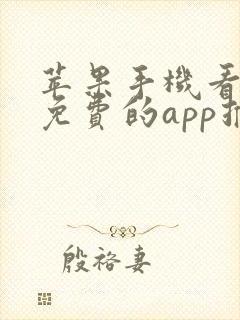 苹果手機看
免費的app推
殷袼妻